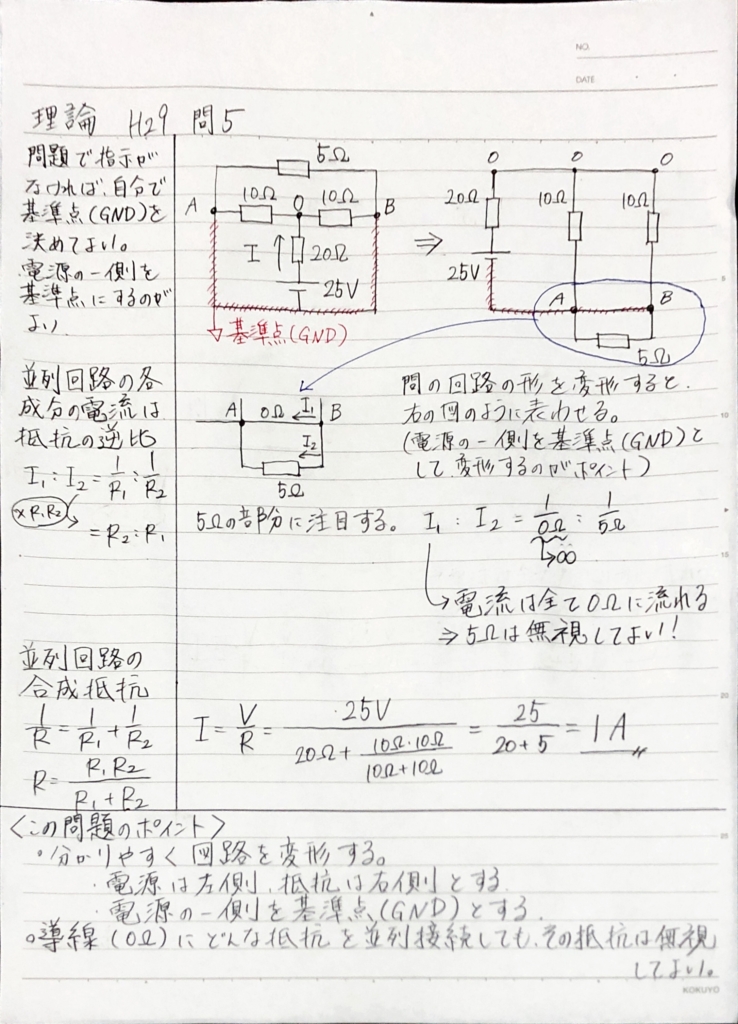 NO.
DATE
理論 H29 問5
問題で指示が
なければ、自分で
基準点(GND)を
決めてよい。
電源の一側を
基準点にするのが
よい
並列回路の各
成分の電流は
抵抗の逆比
I₁:I₂=1/R₁:1/R₂
×R₁R₂
=R₂:R₁
並列回路の
合成抵抗
1/R=1/R₁+1/R₂
R=R₁R₂/R₁+R₂
5Ω
A 10Ω 0 10Ω B
I 20Ω
25V
基準点(GND)
⇒
0 0 0
20Ω 10Ω 10Ω
25V
A B
5Ω
A 0Ω I₁ B
I₂
5Ω
問の回路の形を変形すると、
右の図のように表わせる。
(電源の一側を基準点(GND)と
して、変形するのがポイント)
5Ωの部分に注目する。 I₁:I₂=1/0Ω:1/5Ω
→∞
→電流は全て0Ωに流れる
⇒5Ωは無視してよい!
I=V/R=25V/20Ω+10Ω·10Ω/10Ω+10Ω=25/20+5=1A
〈この問題のポイント〉
・分かりやすく回路を変形する。
・電源は左側、抵抗は右側とする
・電源の一側を基準点(GND)とする.
○導線(0Ω)にどんな抵抗を並列接続しても、その抵抗は無視
してよい。
5
10
15
20
25
KOKUYO